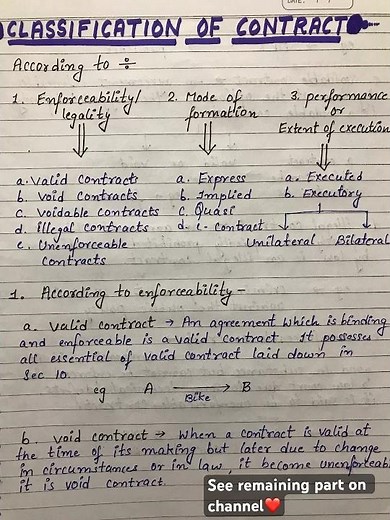 DATE: / /
CLASSIFICATION OF CONTRACT
According to ÷
1. Enforceability/ legality
2. Mode of formation
3. performance or Extent of execution
a. Valid contracts
b. Void contracts
c. Voidable contracts
d. illegal contracts
e. Unenforceable contracts
a. Express
b. Implied
c. Quasi
d. e- contract
a. Executed
b. Executory
Unilateral Bilateral
1. According to enforceability -
a. valid contract → An agreement which is binding
and enforceable is a valid contract. It possesses
all essential of valid contract laid down in
Sec 10.
eg A → B
Bike
b. void contract → When a contract is valid at
the time of its making but later due to change
in circumstances or in law, it become unenforceab
it is void contract.
See remaining part on
channel❤️